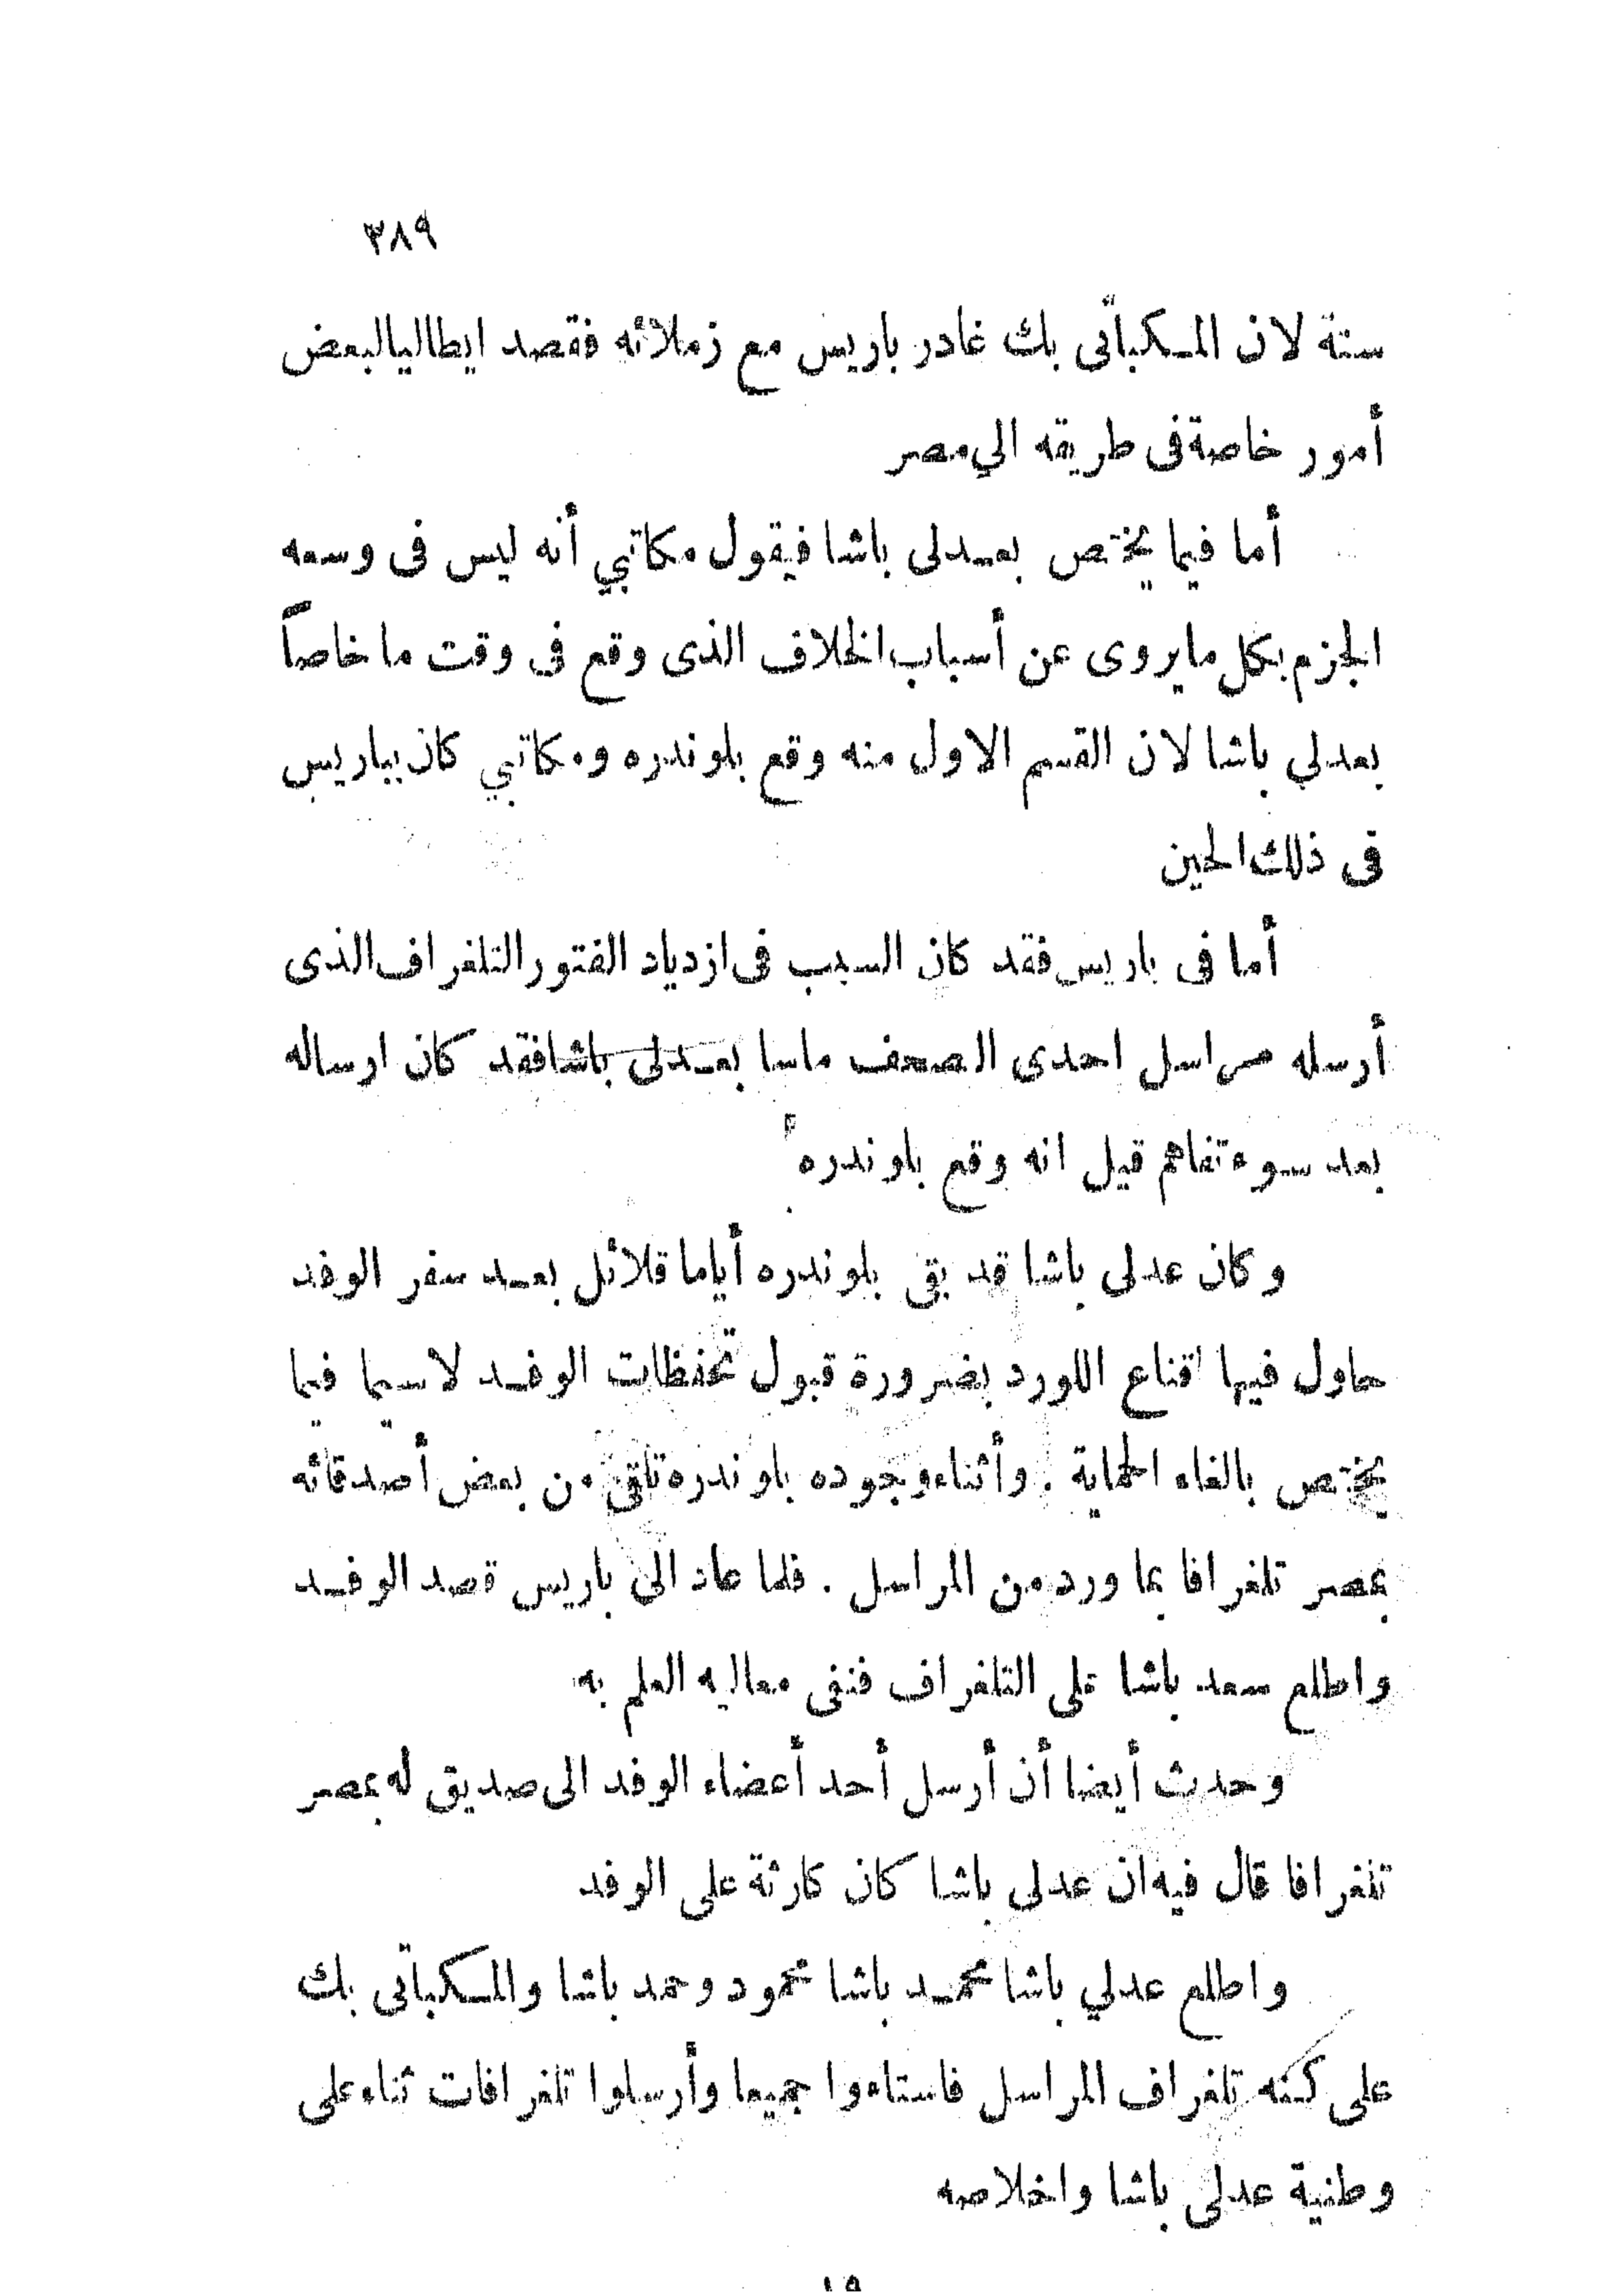 ٣٨٩
ستة لان المكباتى بك غادر باريس مع زملائه فقصد ايطاليا لبعض
أمور خاصة فى طريقه الي مصر
أما فيما يختص بعدلى باشا فيقول مكاتبي أنه ليس فى وسعه
الجزم بكل ما يروى عن أسباب الخلاف الذى وقع فى وقت ما خاصاً
بعدلي باشا لان القسم الاول منه وقع بلوندره ومكاتبي كان بباريس
فى ذلك الحين
أما فى باريس فقد كان السبب فى ازدياد الفتور التلغراف الذى
أرسله مراسل احدى الصحف ماسا بعدلى باشا فقد كان ارساله
بعد سوء تفاهم قيل انه وقع بلوندره
وكان عدلى باشا قد بقى بلوندره أياما قلائل بعد سفر الوفد
حاول فيها اقناع اللورد بضرورة قبول تحفظات الوفد لاسيما فيما
يختص بالغاء الحماية . وأثناء وجوده بلوندره تلقى من بعض أصدقائه
بمصر تلغرافا بما ورد من المراسل . فلما عاد الى باريس قصد الوفد
واطلع سعد باشا على التلغراف فنفى معاليه العلم به
وحدث أيضا أن أرسل أحد أعضاء الوفد الى صديق له بمصر
تلغرافا قال فيه ان عدلى باشا كان كارثة على الوفد
واطلع عدلي باشا محمد باشا محمود وحمد باشا والمكباتى بك
على كنه تلغراف المراسل فاستاءوا جميعا وأرسلوا تلغرافات ثناء على
وطنية عدلى باشا واخلاصه
١٩